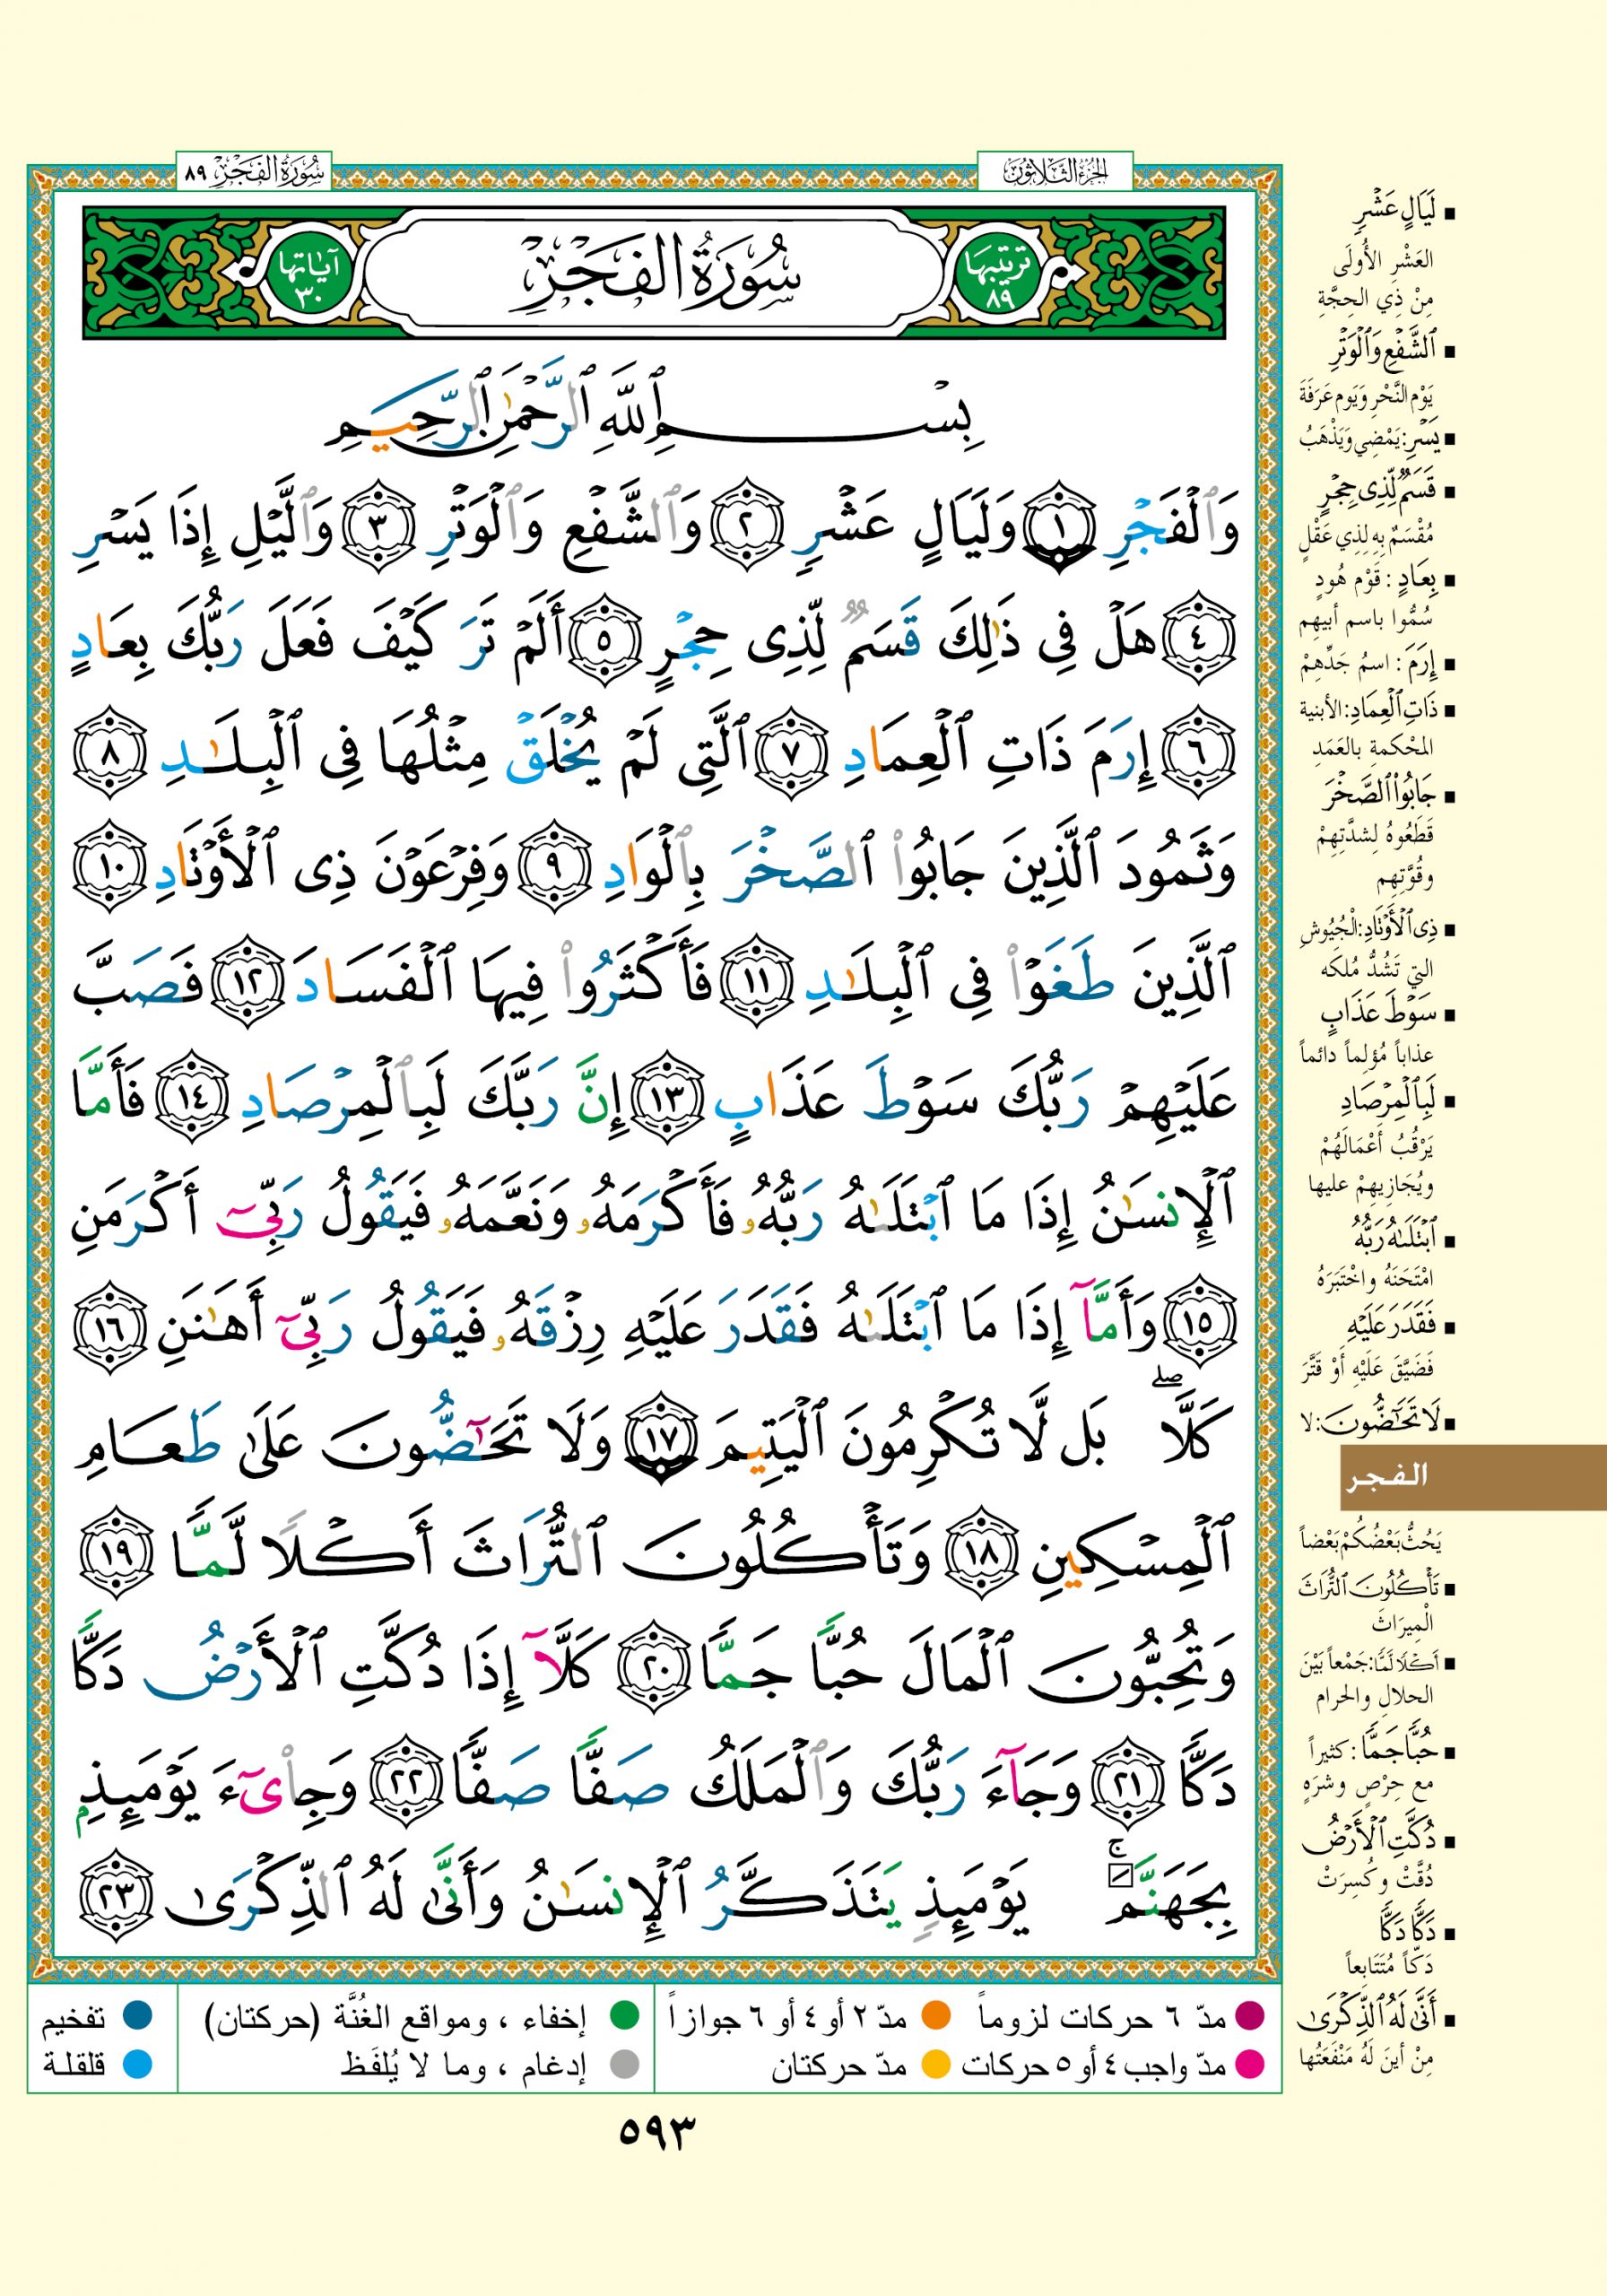 الجزء الثلاثون
سورة الفجر ٨٩
ترتيبها ٨٩
سُورَةُ الفَجْرِ
آياتها ٣٠
بِسْمِ ٱللَّهِ ٱلرَّحْمَٰنِ ٱلرَّحِيمِ
وَٱلْفَجْرِ ١ وَلَيَالٍ عَشْرٍ ٢ وَٱلشَّفْعِ وَٱلْوَتْرِ ٣ وَٱلَّيْلِ إِذَا يَسْرِ
٤ هَلْ فِى ذَٰلِكَ قَسَمٌ لِّذِى حِجْرٍ ٥ أَلَمْ تَرَ كَيْفَ فَعَلَ رَبُّكَ بِعَادٍ
٦ إِرَمَ ذَاتِ ٱلْعِمَادِ ٧ ٱلَّتِى لَمْ يُخْلَقْ مِثْلُهَا فِى ٱلْبِلَٰدِ ٨
وَثَمُودَ ٱلَّذِينَ جَابُوا۟ ٱلصَّخْرَ بِٱلْوَادِ ٩ وَفِرْعَوْنَ ذِى ٱلْأَوْتَادِ ١٠
ٱلَّذِينَ طَغَوْا۟ فِى ٱلْبِلَٰدِ ١١ فَأَكْثَرُوا۟ فِيهَا ٱلْفَسَادَ ١٢ فَصَبَّ
عَلَيْهِمْ رَبُّكَ سَوْطَ عَذَابٍ ١٣ إِنَّ رَبَّكَ لَبِٱلْمِرْصَادِ ١٤ فَأَمَّا
ٱلْإِنسَٰنُ إِذَا مَا ٱبْتَلَىٰهُ رَبُّهُۥ فَأَكْرَمَهُۥ وَنَعَّمَهُۥ فَيَقُولُ رَبِّىٓ أَكْرَمَنِ
١٥ وَأَمَّآ إِذَا مَا ٱبْتَلَىٰهُ فَقَدَرَ عَلَيْهِ رِزْقَهُۥ فَيَقُولُ رَبِّىٓ أَهَٰنَنِ ١٦
كَلَّا ۖ بَل لَّا تُكْرِمُونَ ٱلْيَتِيمَ ١٧ وَلَا تَحَٰٓضُّونَ عَلَىٰ طَعَامِ
ٱلْمِسْكِينِ ١٨ وَتَأْكُلُونَ ٱلتُّرَاثَ أَكْلًا لَّمًّا ١٩
وَتُحِبُّونَ ٱلْمَالَ حُبًّا جَمًّا ٢٠ كَلَّآ إِذَا دُكَّتِ ٱلْأَرْضُ دَكًّا
دَكًّا ٢١ وَجَآءَ رَبُّكَ وَٱلْمَلَكُ صَفًّا صَفًّا ٢٢ وَجِا۟ىٓءَ يَوْمَئِذٍۭ
بِجَهَنَّمَ ۚ يَوْمَئِذٍ يَتَذَكَّرُ ٱلْإِنسَٰنُ وَأَنَّىٰ لَهُ ٱلذِّكْرَىٰ ٢٣
لَيَالٍ عَشْرٍ
العَشْرِ الأُولَى
مِنْ ذِي الحِجَّةِ
ٱلشَّفْعِ وَٱلْوَتْرِ
يَوْمِ النَّحْرِ وَيَوم عَرَفَةَ
يَسْرِ: يَمْضِي وَيَذْهَبُ
قَسَمٌ لِّذِى حِجْرٍ
مُقْسَمٌ بِهِ لِذِي عَقْلٍ
بِعَادٍ: قَوْم هُودٍ
سُمُّوا باسم أبيهِم
إِرَمَ: اسمُ جَدِّهِمْ
ذَاتِ ٱلْعِمَادِ: الأبنية
المحْكمةِ بالعَمَدِ
جَابُوا۟ ٱلصَّخْرَ
قَطَعُوهُ لِشدَّتِهِمْ
وقُوَّتِهِم
ذِى ٱلْأَوْتَادِ: الجُيُوشِ
التي تَشُدُّ مُلكَه
سَوْطَ عَذَابٍ
عذاباً مُؤلِماً دائماً
لَبِٱلْمِرْصَادِ
يَرْقُبُ أعْمَالَهُمْ
ويُجَازِيهِمْ عليها
ٱبْتَلَىٰهُ رَبُّهُ
امْتَحَنَهُ واخْتَبَرَهُ
فَقَدَرَ عَلَيْهِ
فَضَيَّقَ عَلَيْهِ أوْ قَتَّرَ
لَا تَحَٰٓضُّونَ: لا
الفجر
يَحُثُّ بَعْضُكُمْ بَعْضاً
تَأْكُلُونَ ٱلتُّرَاثَ
الْمِيرَاثَ
أَكْلًا لَّمًّا: جَمْعاً بَيْنَ
الحلالِ والحرام
حُبًّا جَمًّا: كثيراً
مع حِرْصٍ وشرَهٍ
دُكَّتِ ٱلْأَرْضُ
دُقَّتْ وكُسِرَتْ
دَكًّا دَكًّا
دَكّاً مُتَتَابِعاً
أَنَّىٰ لَهُ ٱلذِّكْرَىٰ
مِنْ أينَ لَهُ مَنْفَعَتُها
مدّ ٦ حركات لزوماً
مدّ ٢ أو ٤ أو ٦ جوازاً
إخفاء ، ومواقع الغُنَّة (حركتان)
تفخيم
مدّ واجب ٤ أو ٥ حركات
مدّ حركتان
إدغام ، وما لا يُلفَظ
قلقلة
٥٩٣